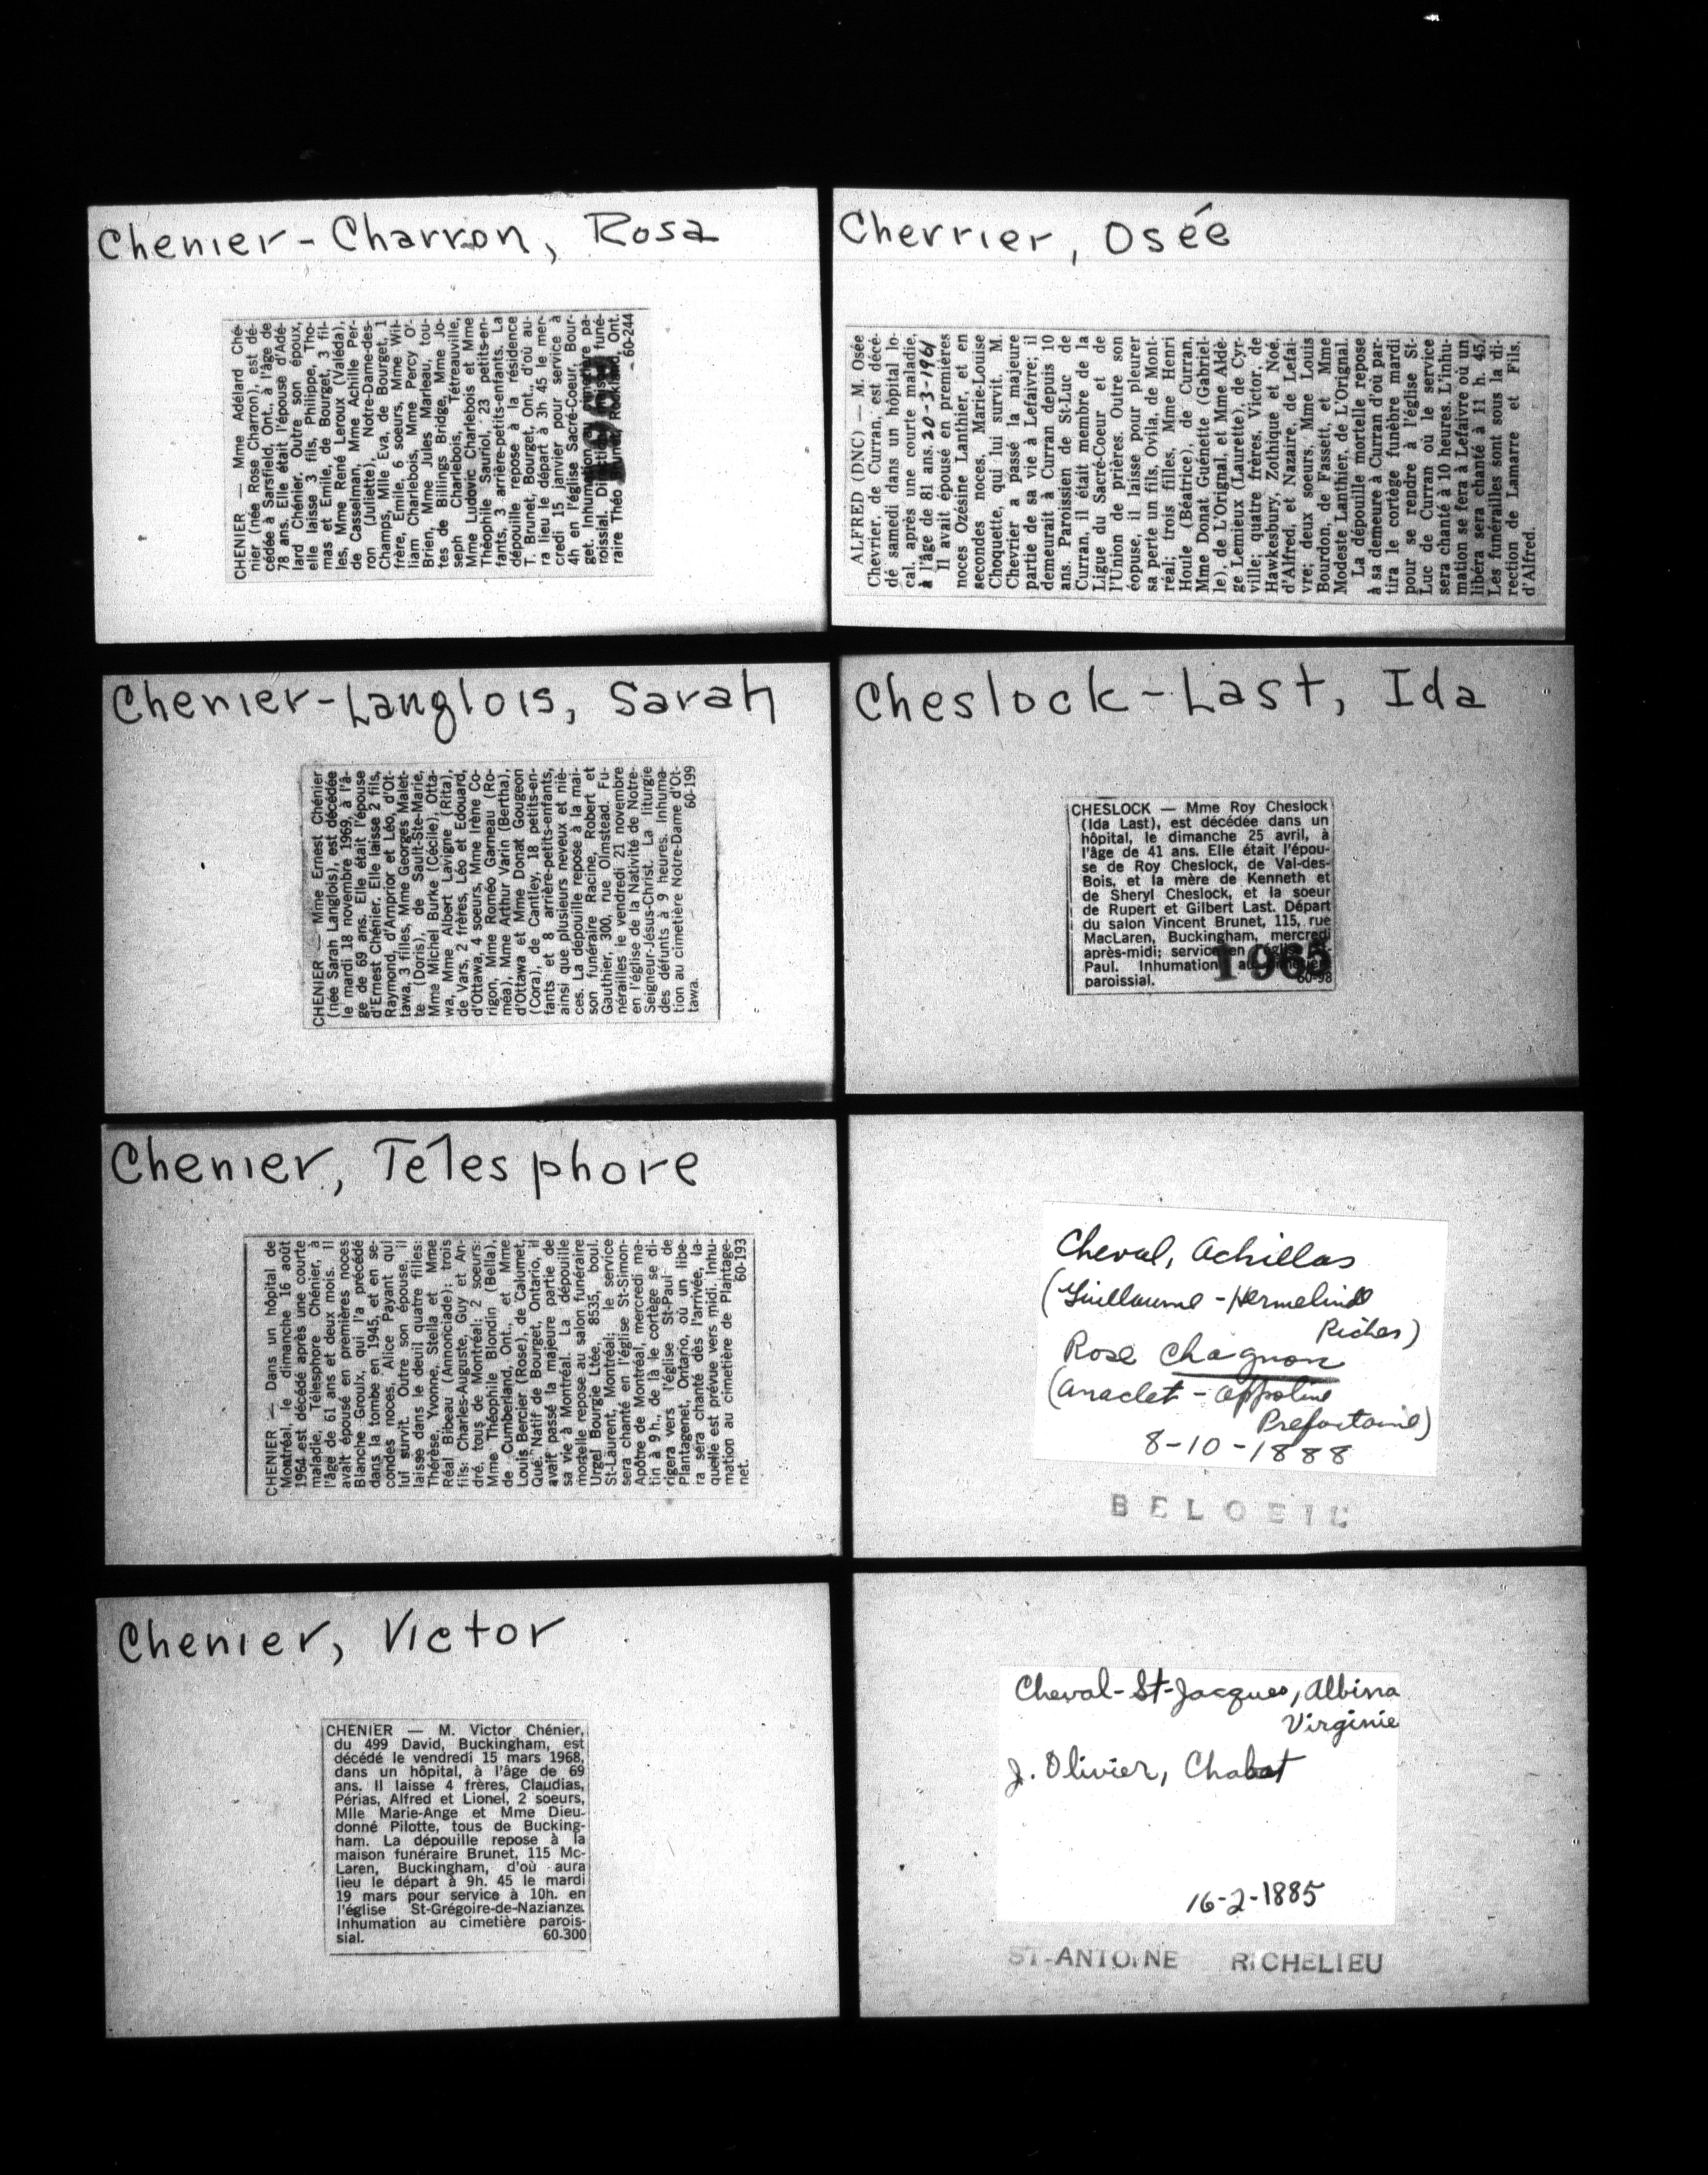 Chenier-Charron, Rosa
CHENIER — Mme Adélard Ché-
nier (née Rose Charron), est dé-
cédée à Sarsfield, Ont., à l'âge de
78 ans. Elle était l'épouse d'Adé-
lard Chénier. Outre son époux,
elle laisse 3 fils, Philippe, Tho-
mas et Emile, de Bourget, 3 fil-
les, Mme René Leroux (Valéda),
de Casselman, Mme Achille Per-
ron (Juliette), Notre-Dame-des-
Champs, Mlle Eva, de Bourget, 1
frère, Emile, 6 soeurs, Mme Wil-
liam Charlebois, Mme Percy O'-
Brien, Mme Jules Marleau, tou-
tes de Billings Bridge, Mme Jo-
seph Charlebois, Tétreauville,
Mme Ludovic Charlebois et Mme
Théophile Sauriol, 23 petits-en-
fants, 3 arrière-petits-enfants. La
dépouille repose à la résidence
T. Brunet, Bourget, Ont., d'où au-
ra lieu le départ à 3h 45 le mer-
credi 15 janvier pour service à
4h en l'église Sacré-Coeur, Bour-
get. Inhumation au cimetière pa-
roissial. funé-
raire Théo Brunet, Rockland, Ont.
60-244
Chevrier, Osée
ALFRED (DNC) — M. Osée
Chevrier, de Curran, est décé-
dé samedi dans un hôpital lo-
cal, après une courte maladie,
à l'âge de 81 ans. 20-3-1961
Il avait épousé en premières
noces Ozésine Lanthier, et en
secondes noces, Marie-Louise
Choquette, qui lui survit. M.
Chevrier a passé la majeure
partie de sa vie à Lefaivre; il
demeurait à Curran depuis 10
ans. Paroissien de St-Luc de
Curran, il était membre de la
Ligue du Sacré-Coeur et de
l'Union de prières. Outre son
éopuse, il laisse pour pleurer
sa perte un fils, Ovila, de Mont-
réal; trois filles, Mme Henri
Houle (Béatrice), de Curran,
Mme Donat Guénette (Gabriel-
le), de L'Orignal, et Mme Adé-
ge Lemieux (Laurette), de Cyr-
ville; quatre frères, Victor, de
Hawkesbury, Zothique et Noé,
d'Alfred, et Nazaire, de Lefai-
vre; deux soeurs, Mme Louis
Bourdon, de Fassett, et Mme
Modeste Lanthier, de L'Orignal.
La dépouille mortelle repose
à sa demeure à Curran d'où par-
tira le cortège funèbre mardi
pour se rendre à l'église St-
Luc de Curran où le service
sera chanté à 10 heures. L'inhu-
mation se fera à Lefaivre où un
libéra sera chanté à 11 h. 45.
Les funérailles sont sous la di-
rection de Lamarre et Fils,
d'Alfred.
Chenier-Langlois, Sarah
CHENIER — Mme Ernest Chénier
(née Sarah Langlois), est décédée
le mardi 18 novembre 1969, à l'â-
ge de 69 ans. Elle était l'épouse
d'Ernest Chénier. Elle laisse 2 fils,
Raymond, d'Arnprior et Léo, d'Ot-
tawa, 3 filles, Mme Georges Malet-
te (Doris), de Sault-Ste-Marie,
Mme Michel Burke (Cécile), Otta-
wa, Mme Albert Lavigne (Rita),
de Vars, 2 frères, Léo et Edouard,
d'Ottawa, 4 soeurs, Mme Irène Co-
rigon, Mme Roméo Garneau (Ro-
méa), Mme Arthur Varin (Bertha),
d'Ottawa et Mme Donat Gougeon
(Cora), de Cantley, 18 petits-en-
fants et 8 arrière-petits-enfants,
ainsi que plusieurs neveux et niè-
ces. La dépouille repose à la mai-
son funéraire Racine, Robert et
Gauthier, 300, rue Olmstead. Fu-
nérailles le vendredi 21 novembre
en l'église de la Nativité de Notre-
Seigneur-Jésus-Christ. La liturgie
des défunts à 9 heures. Inhuma-
tion au cimetière Notre-Dame d'Ot-
tawa. 60-199
Cheslock-Last, Ida
CHESLOCK — Mme Roy Cheslock
(Ida Last), est décédée dans un
hôpital, le dimanche 25 avril, à
l'âge de 41 ans. Elle était l'épou-
se de Roy Cheslock, de Val-des-
Bois, et la mère de Kenneth et
de Sheryl Cheslock, et la soeur
de Rupert et Gilbert Last. Départ
du salon Vincent Brunet, 115, rue
MacLaren, Buckingham, mercredi
après-midi; service en
Paul. Inhumation au
paroissial. 60-98
1965
Chenier, Télesphore
CHENIER — Dans un hôpital de
Montréal, le dimanche 16 août
1964 est décédé après une courte
maladie, Télesphore Chénier, à
l'âge de 61 ans et deux mois. Il
avait épousé en premières noces
Blanche Groulx, qui l'a précédé
dans la tombe en 1945, et en se-
condes noces, Alice Payant qui
lui survit. Outre son épouse, il
laisse dans le deuil quatre filles:
Thérèse, Yvonne, Stella et Mme
Réal Bibeau (Annonciade); trois
fils: Charles-Auguste, Guy et An-
dré, tous de Montréal; 2 soeurs:
Mme Théophile Blondin (Bella),
de Cumberland, Ont., et Mme
Louis Bercier (Rose), de Calumet,
Qué. Natif de Bourget, Ontario, il
avait passé la majeure partie de
sa vie à Montréal. La dépouille
mortelle repose au salon funéraire
Urgel Bourgie Ltée, 8535, boul.
St-Laurent, Montréal; le service
sera chanté en l'église St-Simon-
Apôtre de Montréal, mercredi ma-
tin à 9 h., de là le cortège se di-
rigera vers l'église St-Paul de
Plantagenet, Ontario, où un libe-
ra sera chanté dès l'arrivée, la-
quelle est prévue vers midi. Inhu-
mation au cimetière de Plantage-
net. 60-193
Cheval, Achillas
(Guillaume - Hermelinde
Riches)
Rose Chagnon
(Anaclet - Appoline
Prefontaine)
8-10-1888
BELOEIL
Chenier, Victor
CHENIER — M. Victor Chénier,
du 499 David, Buckingham, est
décédé le vendredi 15 mars 1968,
dans un hôpital, à l'âge de 69
ans. Il laisse 4 frères, Claudias,
Périas, Alfred et Lionel, 2 soeurs,
Mlle Marie-Ange et Mme Dieu-
donné Pilotte, tous de Bucking-
ham. La dépouille repose à la
maison funéraire Brunet, 115 Mc-
Laren, Buckingham, d'où aura
lieu le départ à 9h. 45 le mardi
19 mars pour service à 10h. en
l'église St-Grégoire-de-Nazianze.
Inhumation au cimetière parois-
sial. 60-300
Cheval-St-Jacques, Albina
Virginie
J. Olivier, Chabot
16-2-1885
ST-ANTOINE RICHELIEU